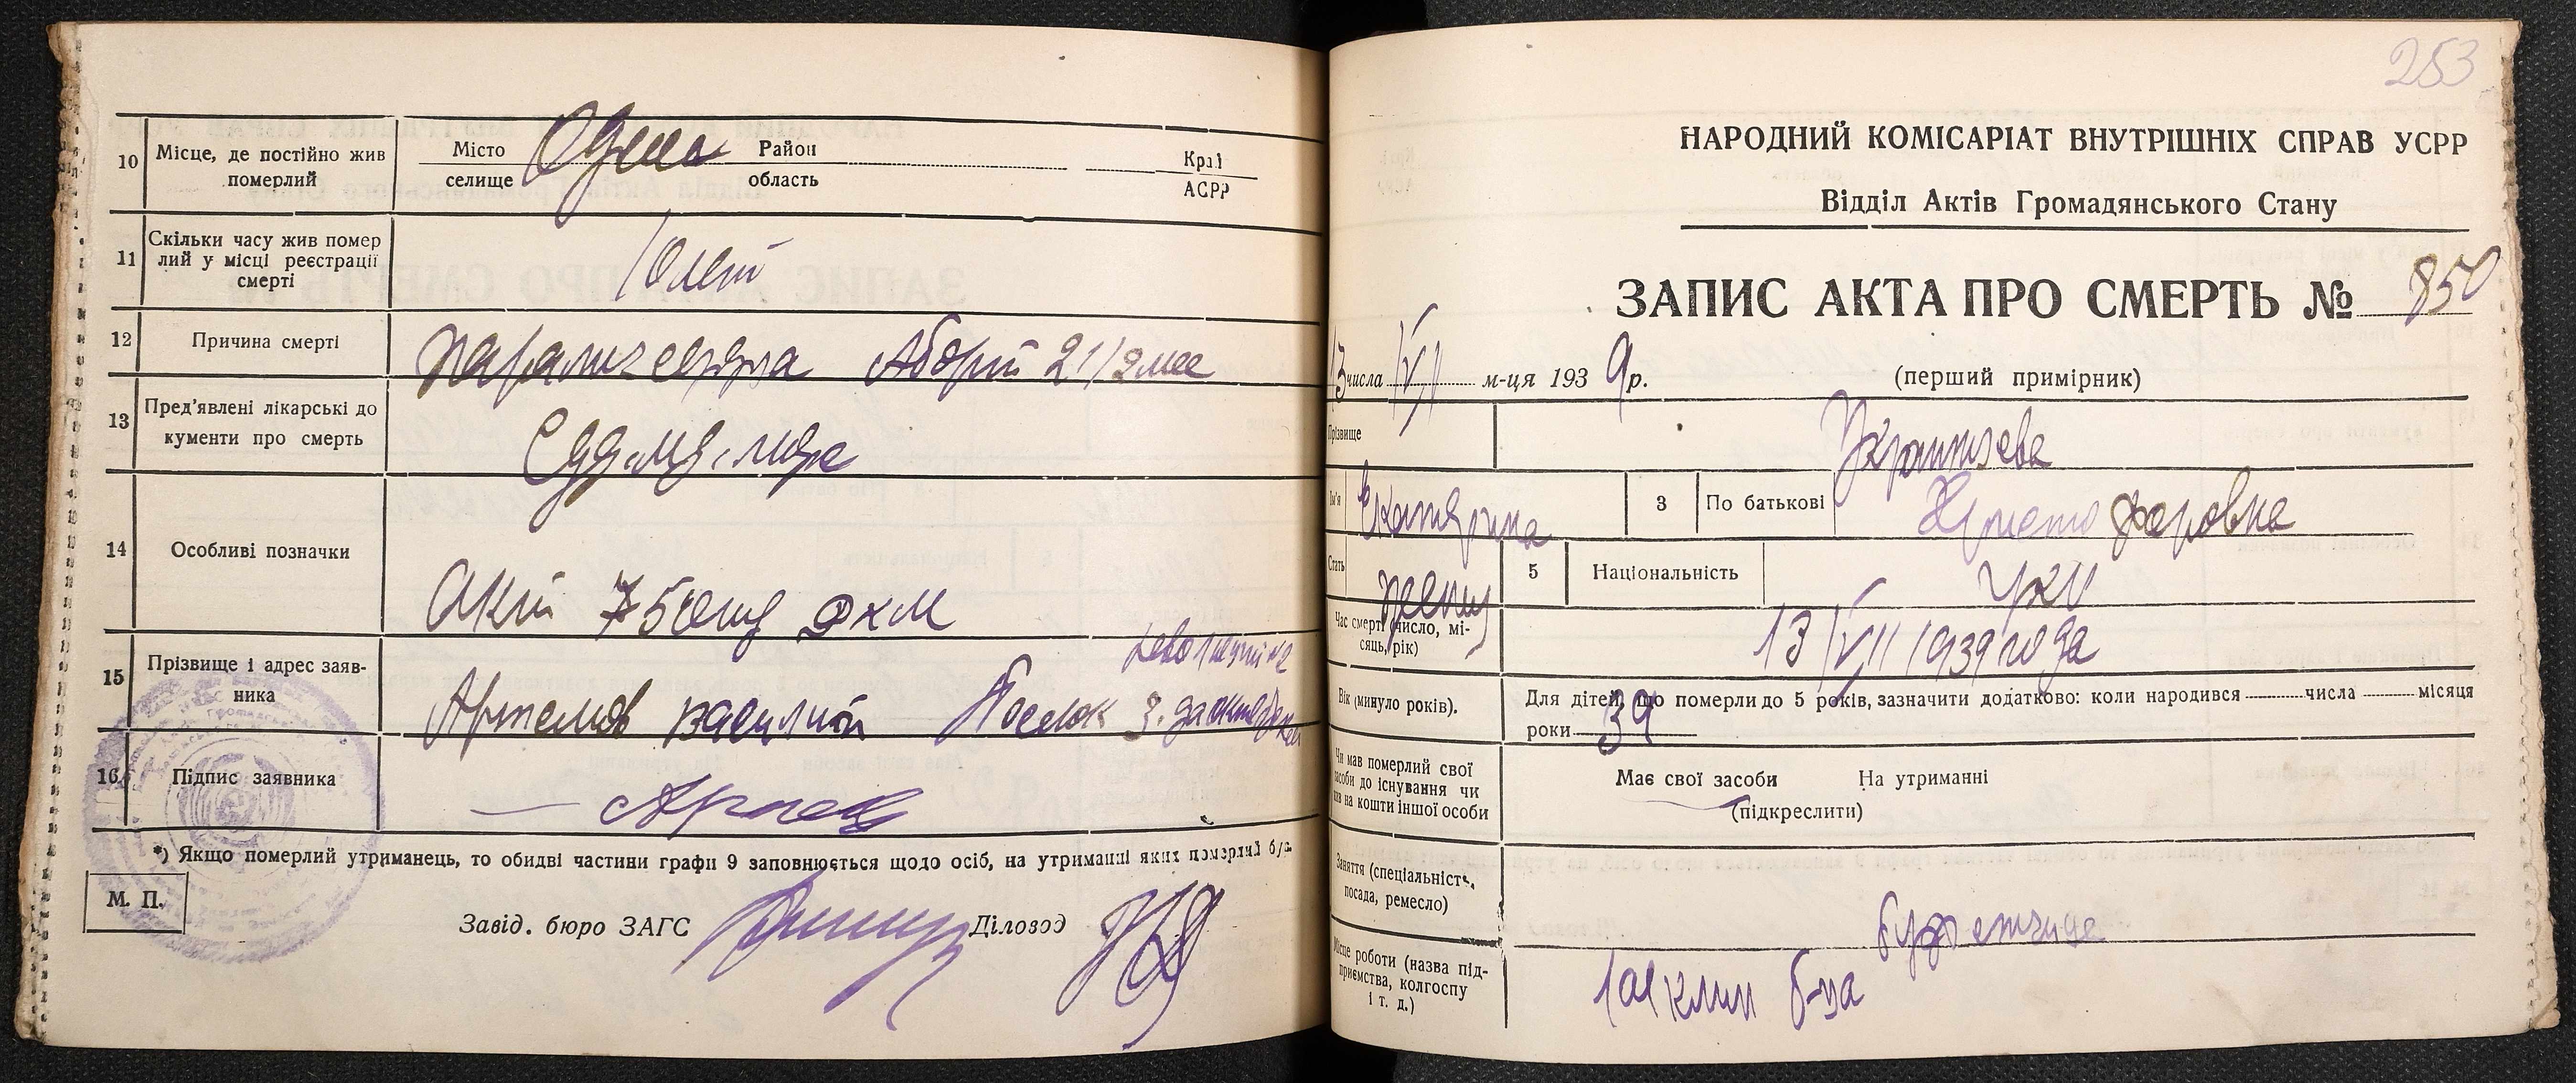 10 Місце, де постійно жив померлий
Місто селище Одеса Район область Край АСРР
11 Скільки часу жив помер
лий у місці реєстрації
смерті
10 лет
12 Причина смерті
Паралич сердца Аборт 2 1/2 мес
13 Пред'явлені лікарські до
кументи про смерть
14 Особливі позначки
Акт 75
15 Прізвище і адрес заяв-
ника
Артемов Василий Поселок
16 Підпис заявника
*) Якщо померлий утриманець, то обидві частини графи 9 заповнюється щодо осіб, на утриманні яких померлий був
М. П.
Завід. бюро ЗАГС
Діловод
253
НАРОДНИЙ КОМІСАРІАТ ВНУТРІШНІХ СПРАВ УСРР
Відділ Актів Громадянського Стану
ЗАПИС АКТА ПРО СМЕРТЬ № 850
13 числа VII м-ця 1939 р. (перший примірник)
Прізвище
Ім'я Екатерина 3 По батькові Христофоровна
Стать женщ 5 Національність укр
Час смерті (число, мі-
сяць, рік)
13/VII 1939 года
Вік (минуло років).
Для дітей, що померли до 5 років, зазначити додатково: коли народився числа місяця
роки 39
Чи мав померлий свої
засоби до існування чи
жив на кошти іншої особи
Має свої засоби На утриманні
(підкреслити)
Заняття (спеціальність,
посада, ремесло)
буфетчица
Місце роботи (назва під-
приємства, колгоспу
і т. д.)
1ая клин б-ца